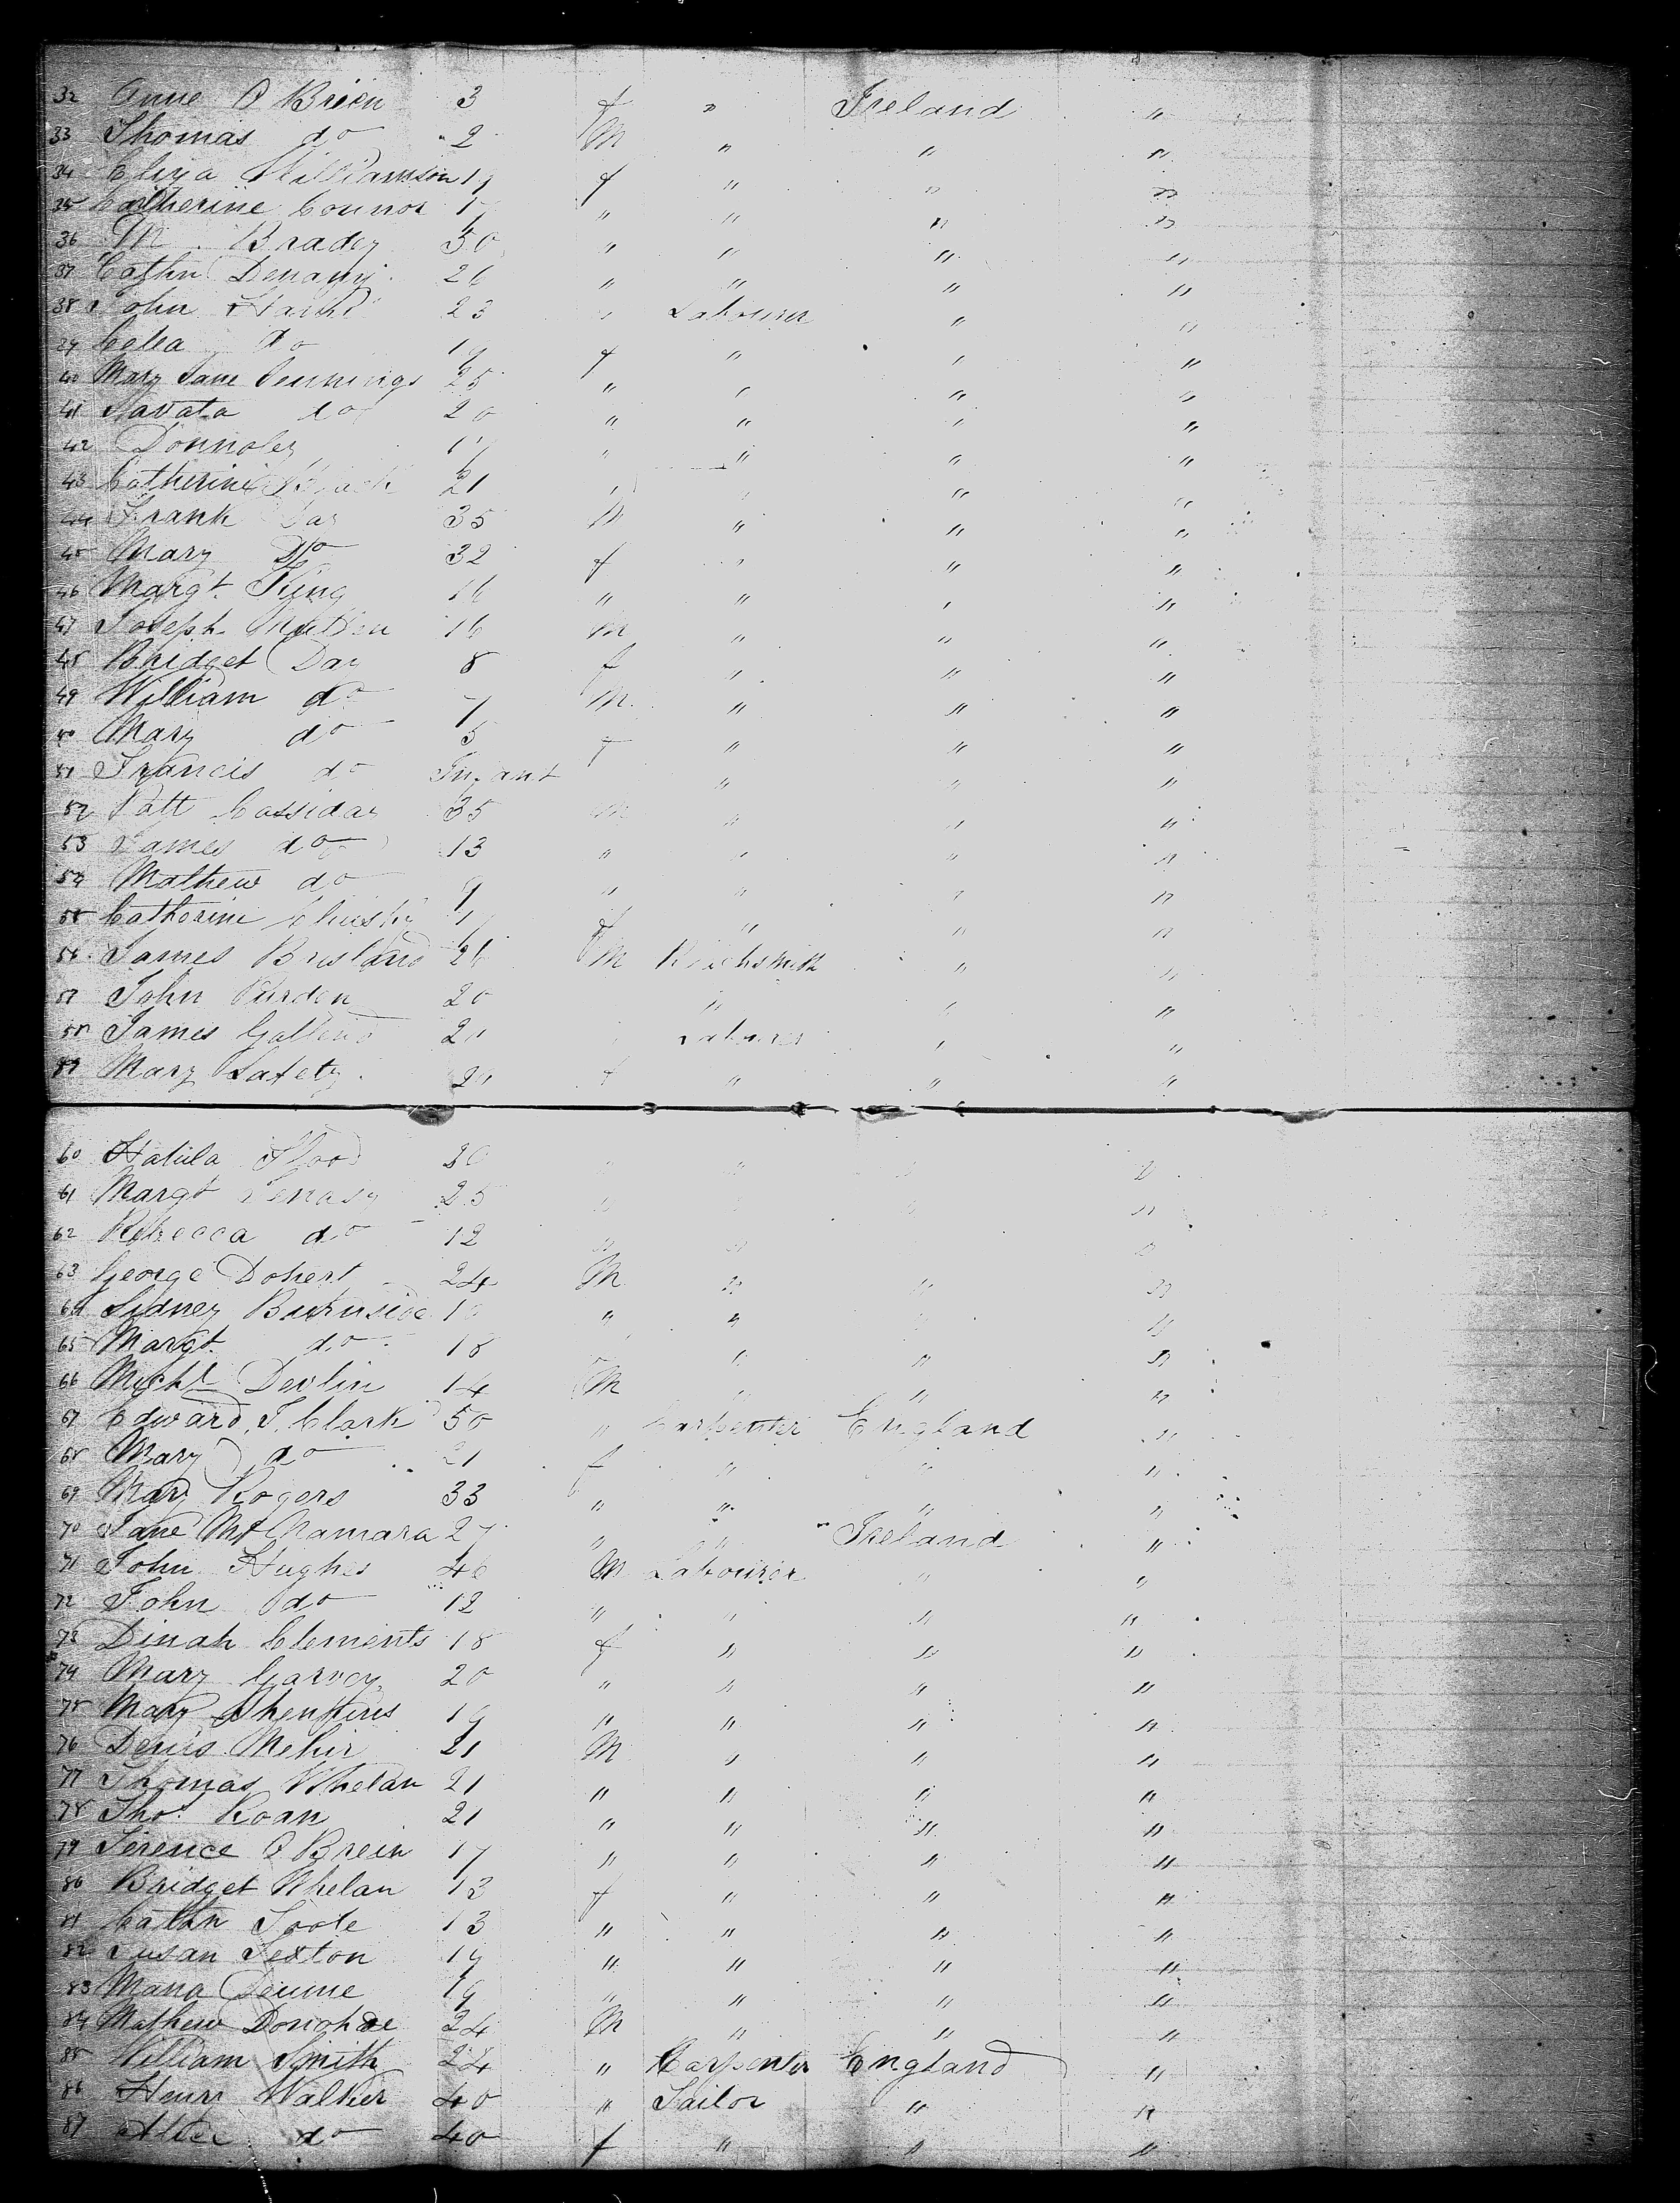 32 Anne O Brien 3 f " Ireland "
33 Thomas do 2 M " " "
34 Eliza Williamson 19 f " " "
35 Catherine Connor 17 " " " "
36 M. Brady 50 " " " "
37 Cathn 26 " " " "
38 John 23 " Labourer " "
39 Celia do 19 f " " "
40 Mary Jane Jennings 25 " " " "
41 do 20 " " " "
42 " " " "
43 Catherine 21 " " " "
44 Frank Day 35 M " " "
45 Mary Do 32 f " " "
46 Margt. King 16 " " " "
47 Joseph 16 M " " "
48 Bridget Day 8 f " " "
49 William do 7 M " " "
50 Mary do 5 f " " "
51 Francis do Infant " " "
52 Patt Cassiday 35 M " " "
53 James do 13 " " " "
54 Mathew do 9 " " " "
55 Catherine f " " "
56 James 26 M Blacksmith " "
57 John Purden 20 " " "
58 James 20 " Labourer " "
59 Mary Lafety 20 f " " "
60 Flood 30 " " " "
61 Margt 25 " " " "
62 Rebecca do 12 " " "
63 George Dohert 24 M " " "
64 Sidney Burnside " " " "
65 Margt. do 18 " " " "
66 Michl Devlin 14 M " " "
67 Edward J. Clark 50 " Carpenter England "
68 Mary do 21 f " " "
69 Mary Rogers 33 " " " "
70 Jane McNamara 27 " " Ireland "
71 John Hughes 40 M Labourer " "
72 John do 12 " " " "
73 Dinah Clements 18 f " " "
74 Mary Garvey 20 " " " "
75 Mary 19 " " " "
76 Denis Mehir 21 M " " "
77 Thomas Whelan 21 " " " "
78 Thos Roan 21 " " " "
79 Terence O Brein 17 " " " "
80 Bridget Whelan 13 f " " "
81 Cathn Toole 13 " " " "
82 Susan Sexton 19 " " " "
83 Maria 19 " " " "
84 Mathew Donohoe 24 M " " "
85 William Smith 24 " Carpenter England "
86 Henry Walker 40 " Tailor " "
87 Alice do 40 f " " "